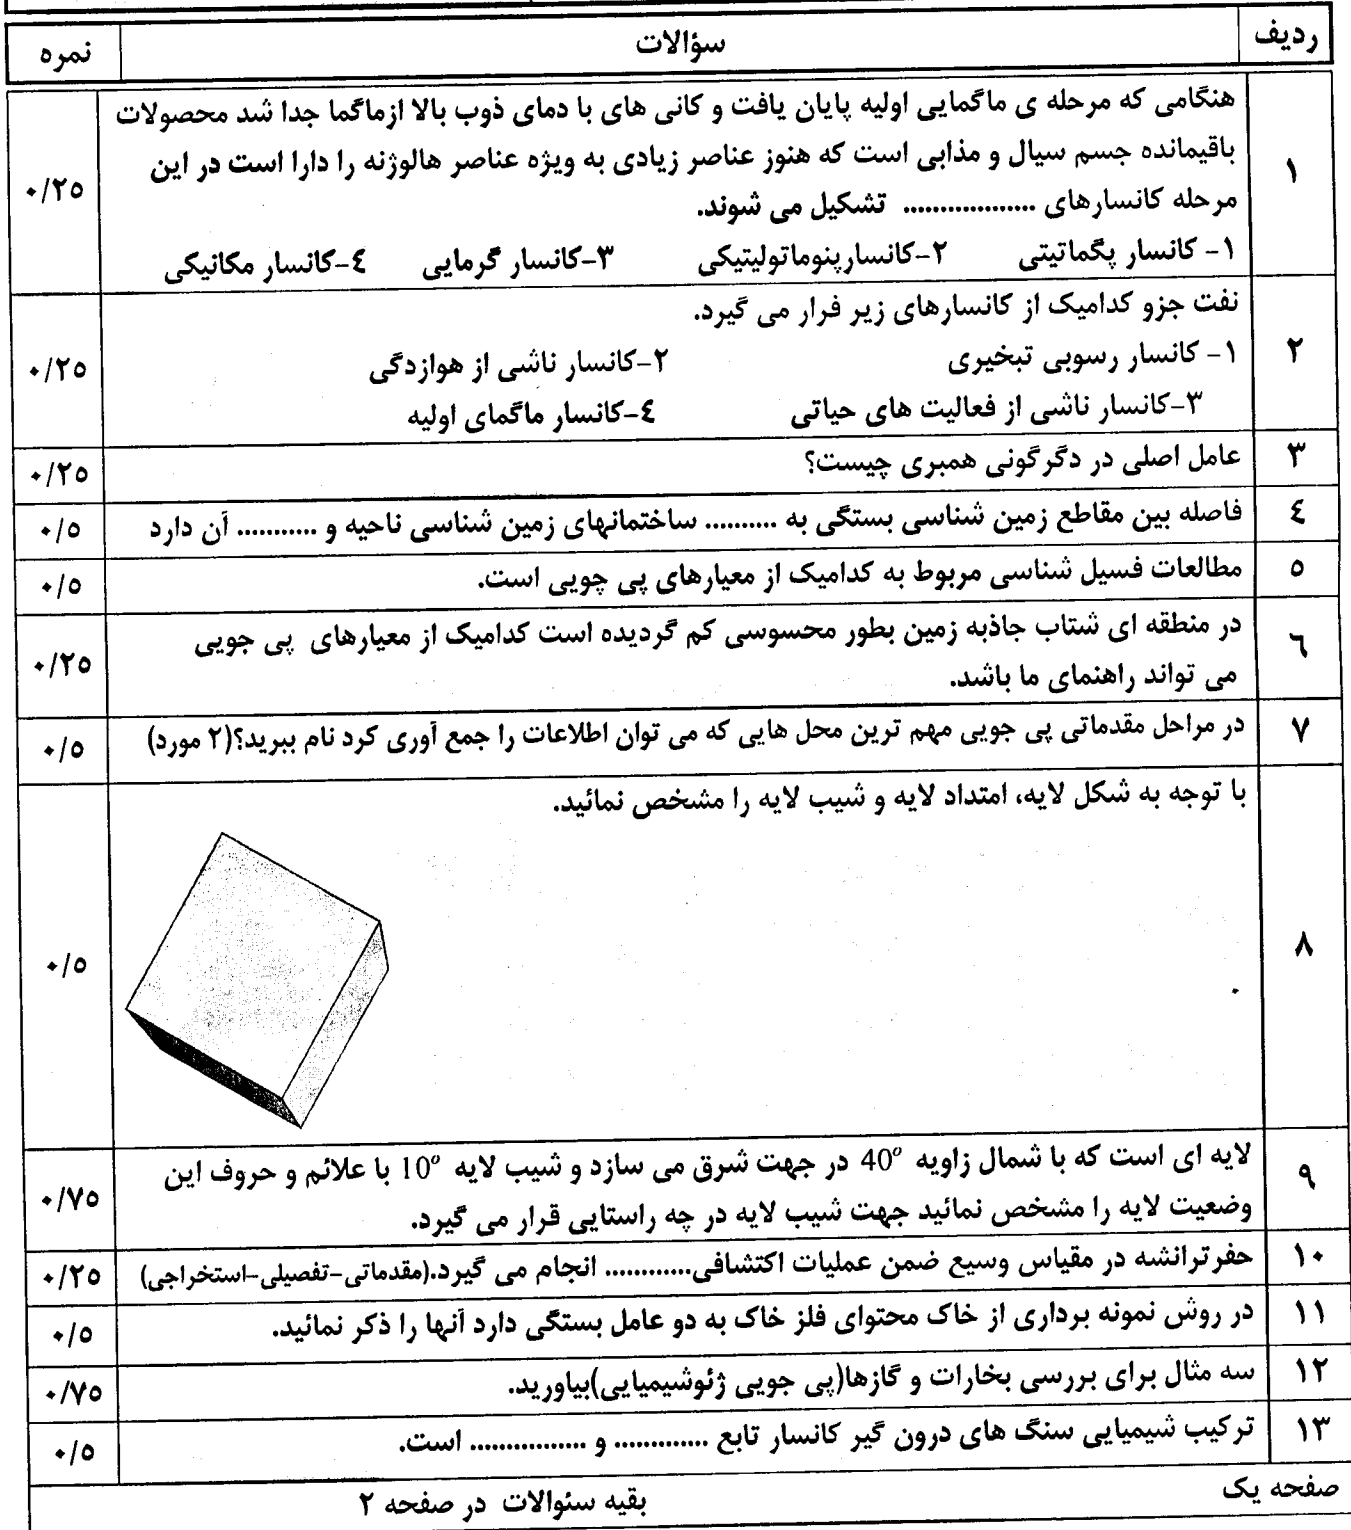 ردیف سؤالات نمره
۱ هنگامی که مرحله ی ماگمایی اولیه پایان یافت و کانی های با دمای ذوب بالا ازماگما جدا شد محصولات
باقیمانده جسم سیال و مذابی است که هنوز عناصر زیادی به ویژه عناصر هالوژنه را دارا است در این
مرحله کانسارهای .................. تشکیل می شوند. ۰/۲۵
۱- کانسار پگماتیتی ۲-کانسارپنوماتولیتیکی ۳-کانسار گرمایی ٤-کانسار مکانیکی
نفت جزو کدامیک از کانسارهای زیر فرار می گیرد.
۲ ۱- کانسار رسوبی تبخیری ۲-کانسار ناشی از هوازدگی ۰/۲۵
۳-کانسار ناشی از فعالیت های حیاتی ٤-کانسار ماگمای اولیه
۳ عامل اصلی در دگرگونی همبری چیست؟ ۰/۲۵
٤ فاصله بین مقاطع زمین شناسی بستگی به .......... ساختمانهای زمین شناسی ناحیه و ........... آن دارد ۰/۵
۵ مطالعات فسیل شناسی مربوط به کدامیک از معیارهای پی چویی است. ۰/۵
٦ در منطقه ای شتاب جاذبه زمین بطور محسوسی کم گردیده است کدامیک از معیارهای پی جویی
می تواند راهنمای ما باشد. ۰/۲۵
۷ در مراحل مقدماتی پی جویی مهم ترین محل هایی که می توان اطلاعات را جمع آوری کرد نام ببرید؟(۲ مورد) ۰/۵
با توجه به شکل لایه، امتداد لایه و شیب لایه را مشخص نمائید.
۸ ۰/۵
۹ لایه ای است که با شمال زاویه 40° در جهت شرق می سازد و شیب لایه 10° با علائم و حروف این
وضعیت لایه را مشخص نمائید جهت شیب لایه در چه راستایی قرار می گیرد. ۰/۷۵
۱۰ حفرترانشه در مقیاس وسیع ضمن عملیات اکتشافی............ انجام می گیرد.(مقدماتی-تفصیلی-استخراجی) ۰/۲۵
۱۱ در روش نمونه برداری از خاک محتوای فلز خاک به دو عامل بستگی دارد آنها را ذکر نمائید. ۰/۵
۱۲ سه مثال برای بررسی بخارات و گازها(پی جویی ژئوشیمیایی)بیاورید. ۰/۷۵
۱۳ ترکیب شیمیایی سنگ های درون گیر کانسار تابع ............. و ................ است. ۰/۵
صفحه یک بقیه سئوالات در صفحه ۲